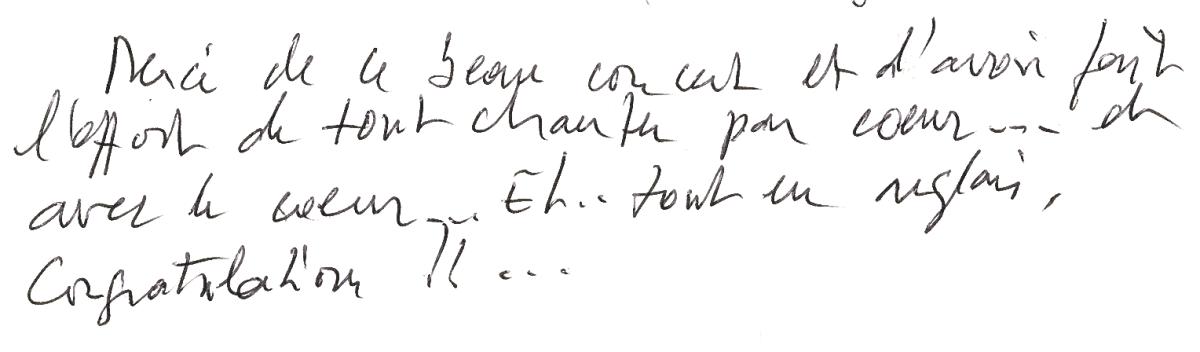 Merci de ce beau concert et d'avoir fait
l'effort de tout chanter par coeur... et
avec le coeur... Et.. tout en anglais,
Congratulation !! ...